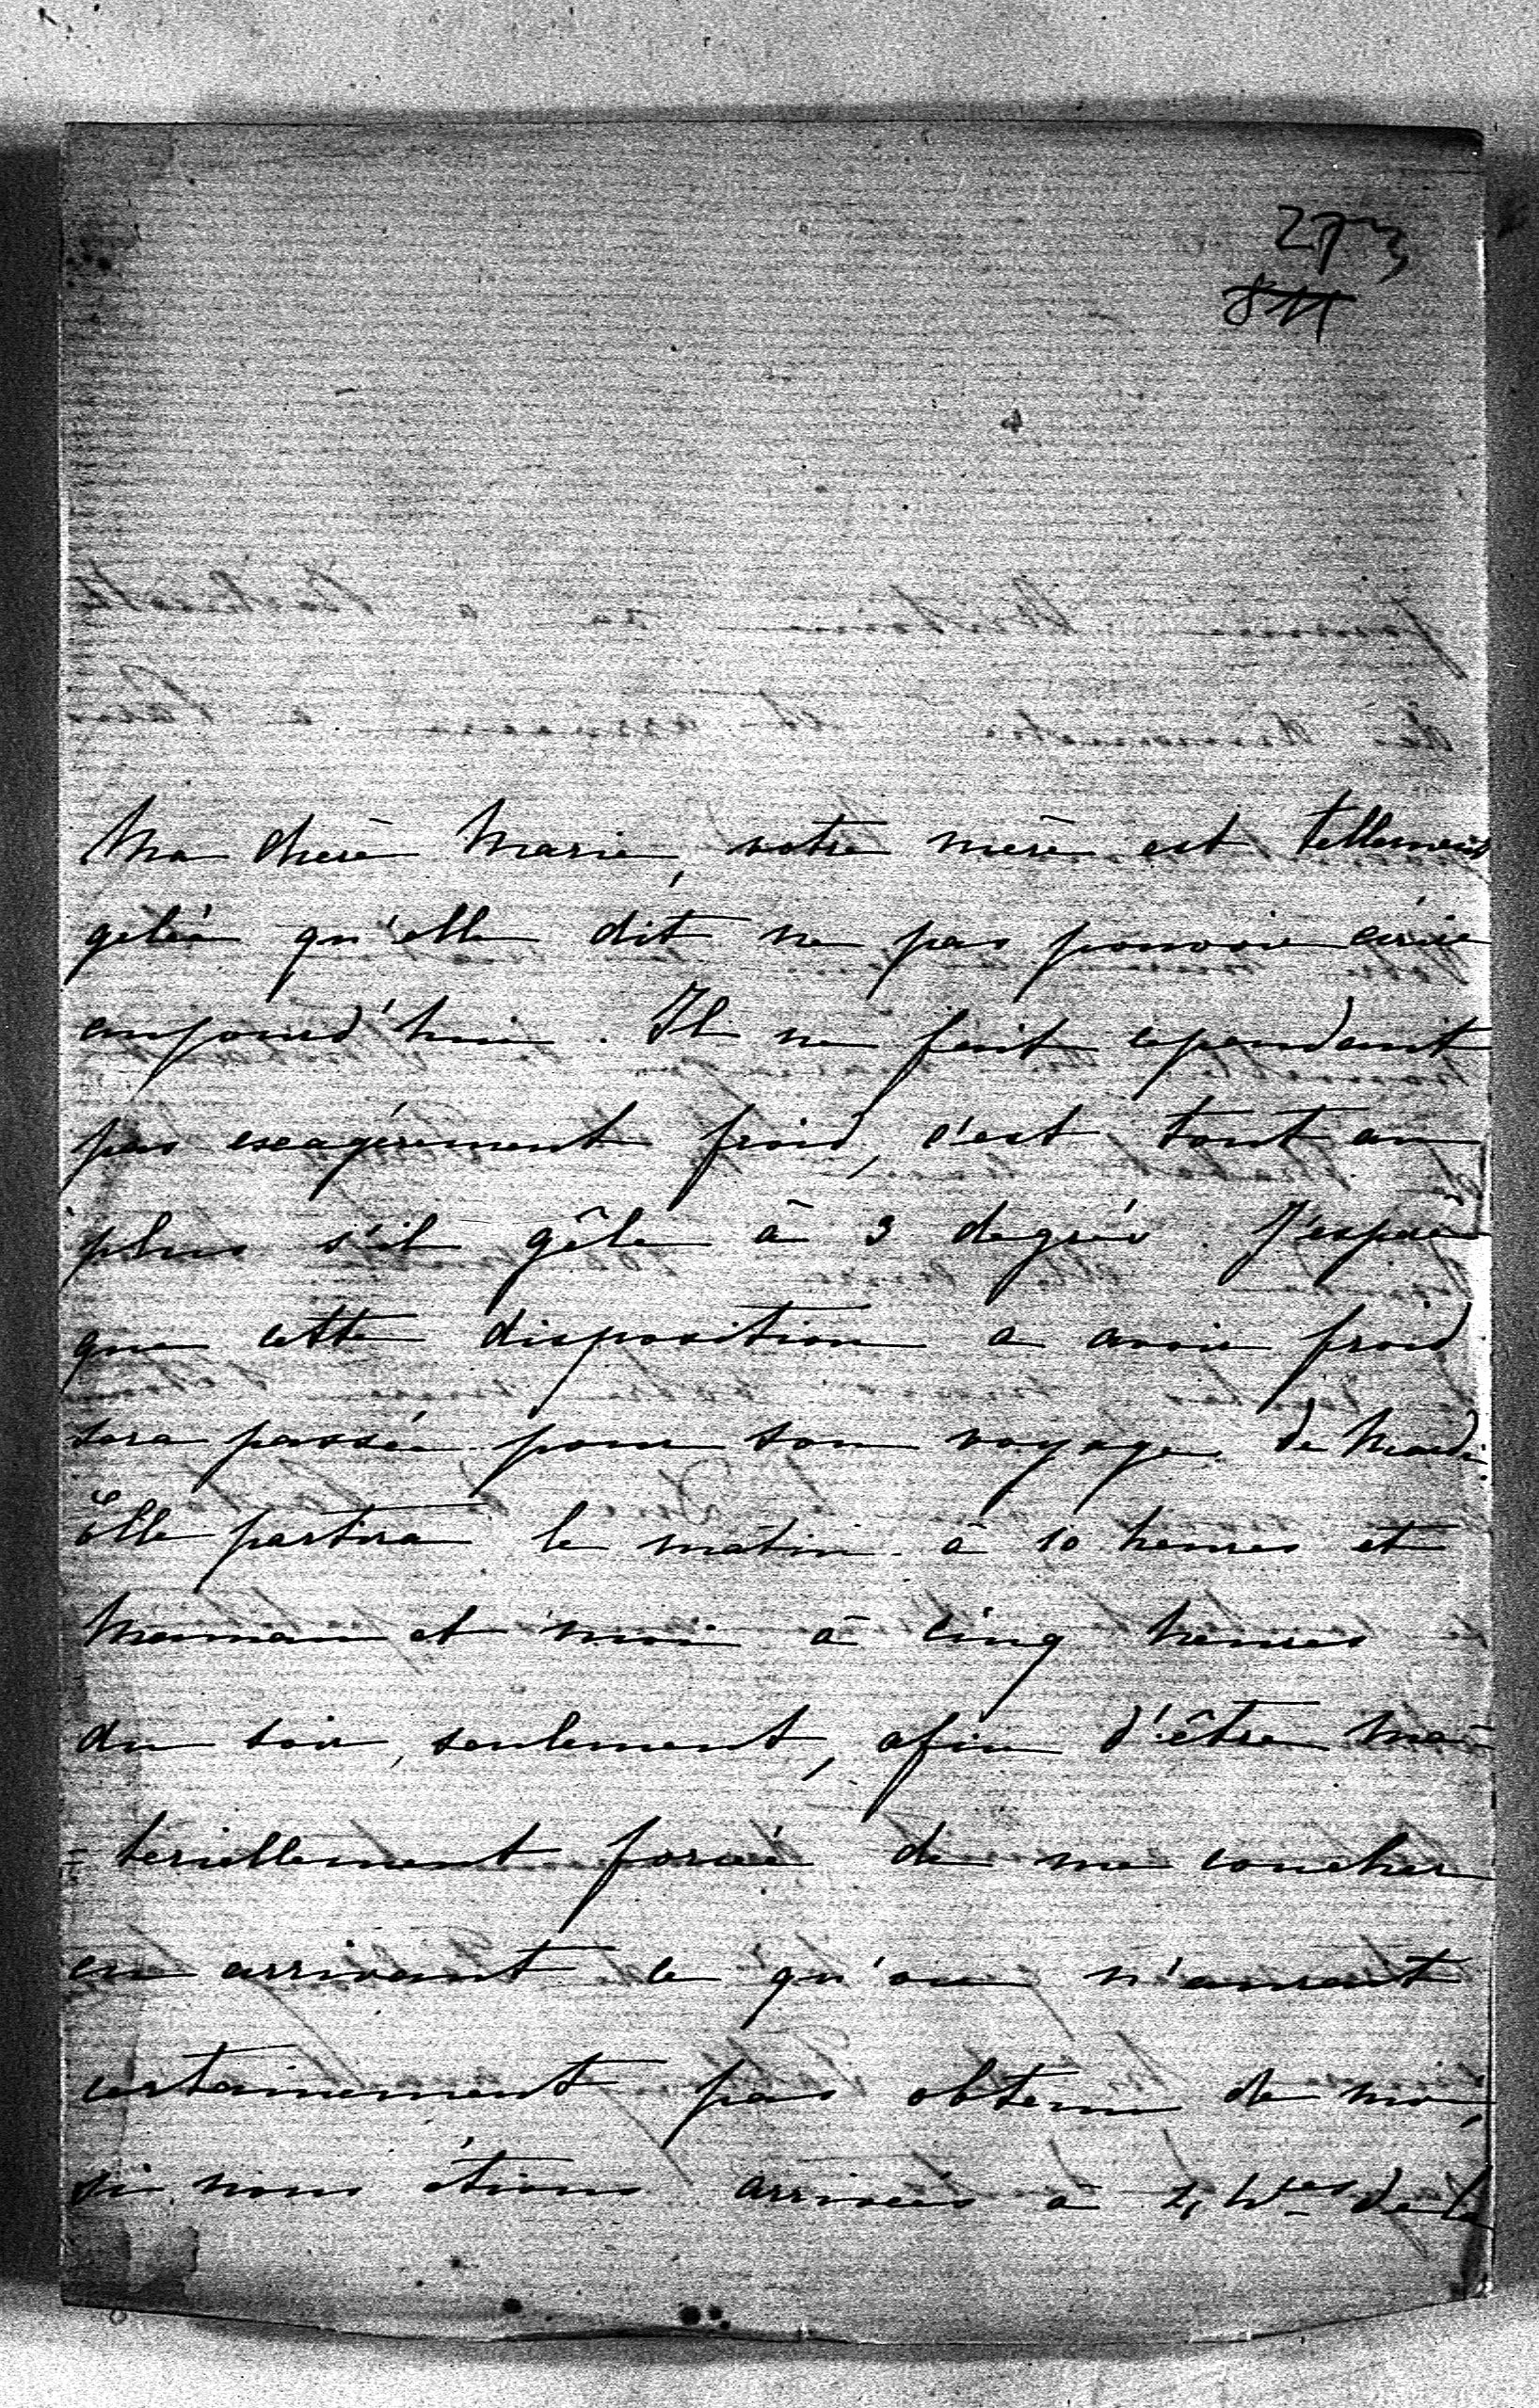 273
Ma chère Marie, votre mère est tellement
gelée qu'elle dit ne pas pouvoir écrire
aujourd'hui. Il ne fait cependant
pas exagérément froid, c'est tout au
plus s'il gêle à 3 degrés. J'espère
que cette disposition a avoir froid
sera passée pour son voyage de Mardi.
Elle partira le matin à 10 heures et
Maman et moi à cinq heures
du soir, seulement, afin d'être ma-
-teriellement forcée de me coucher
en arrivant ce qu'on n'aurait
certainement pas obtenu de moi,
si nous étions arrivées à 4 hres de la